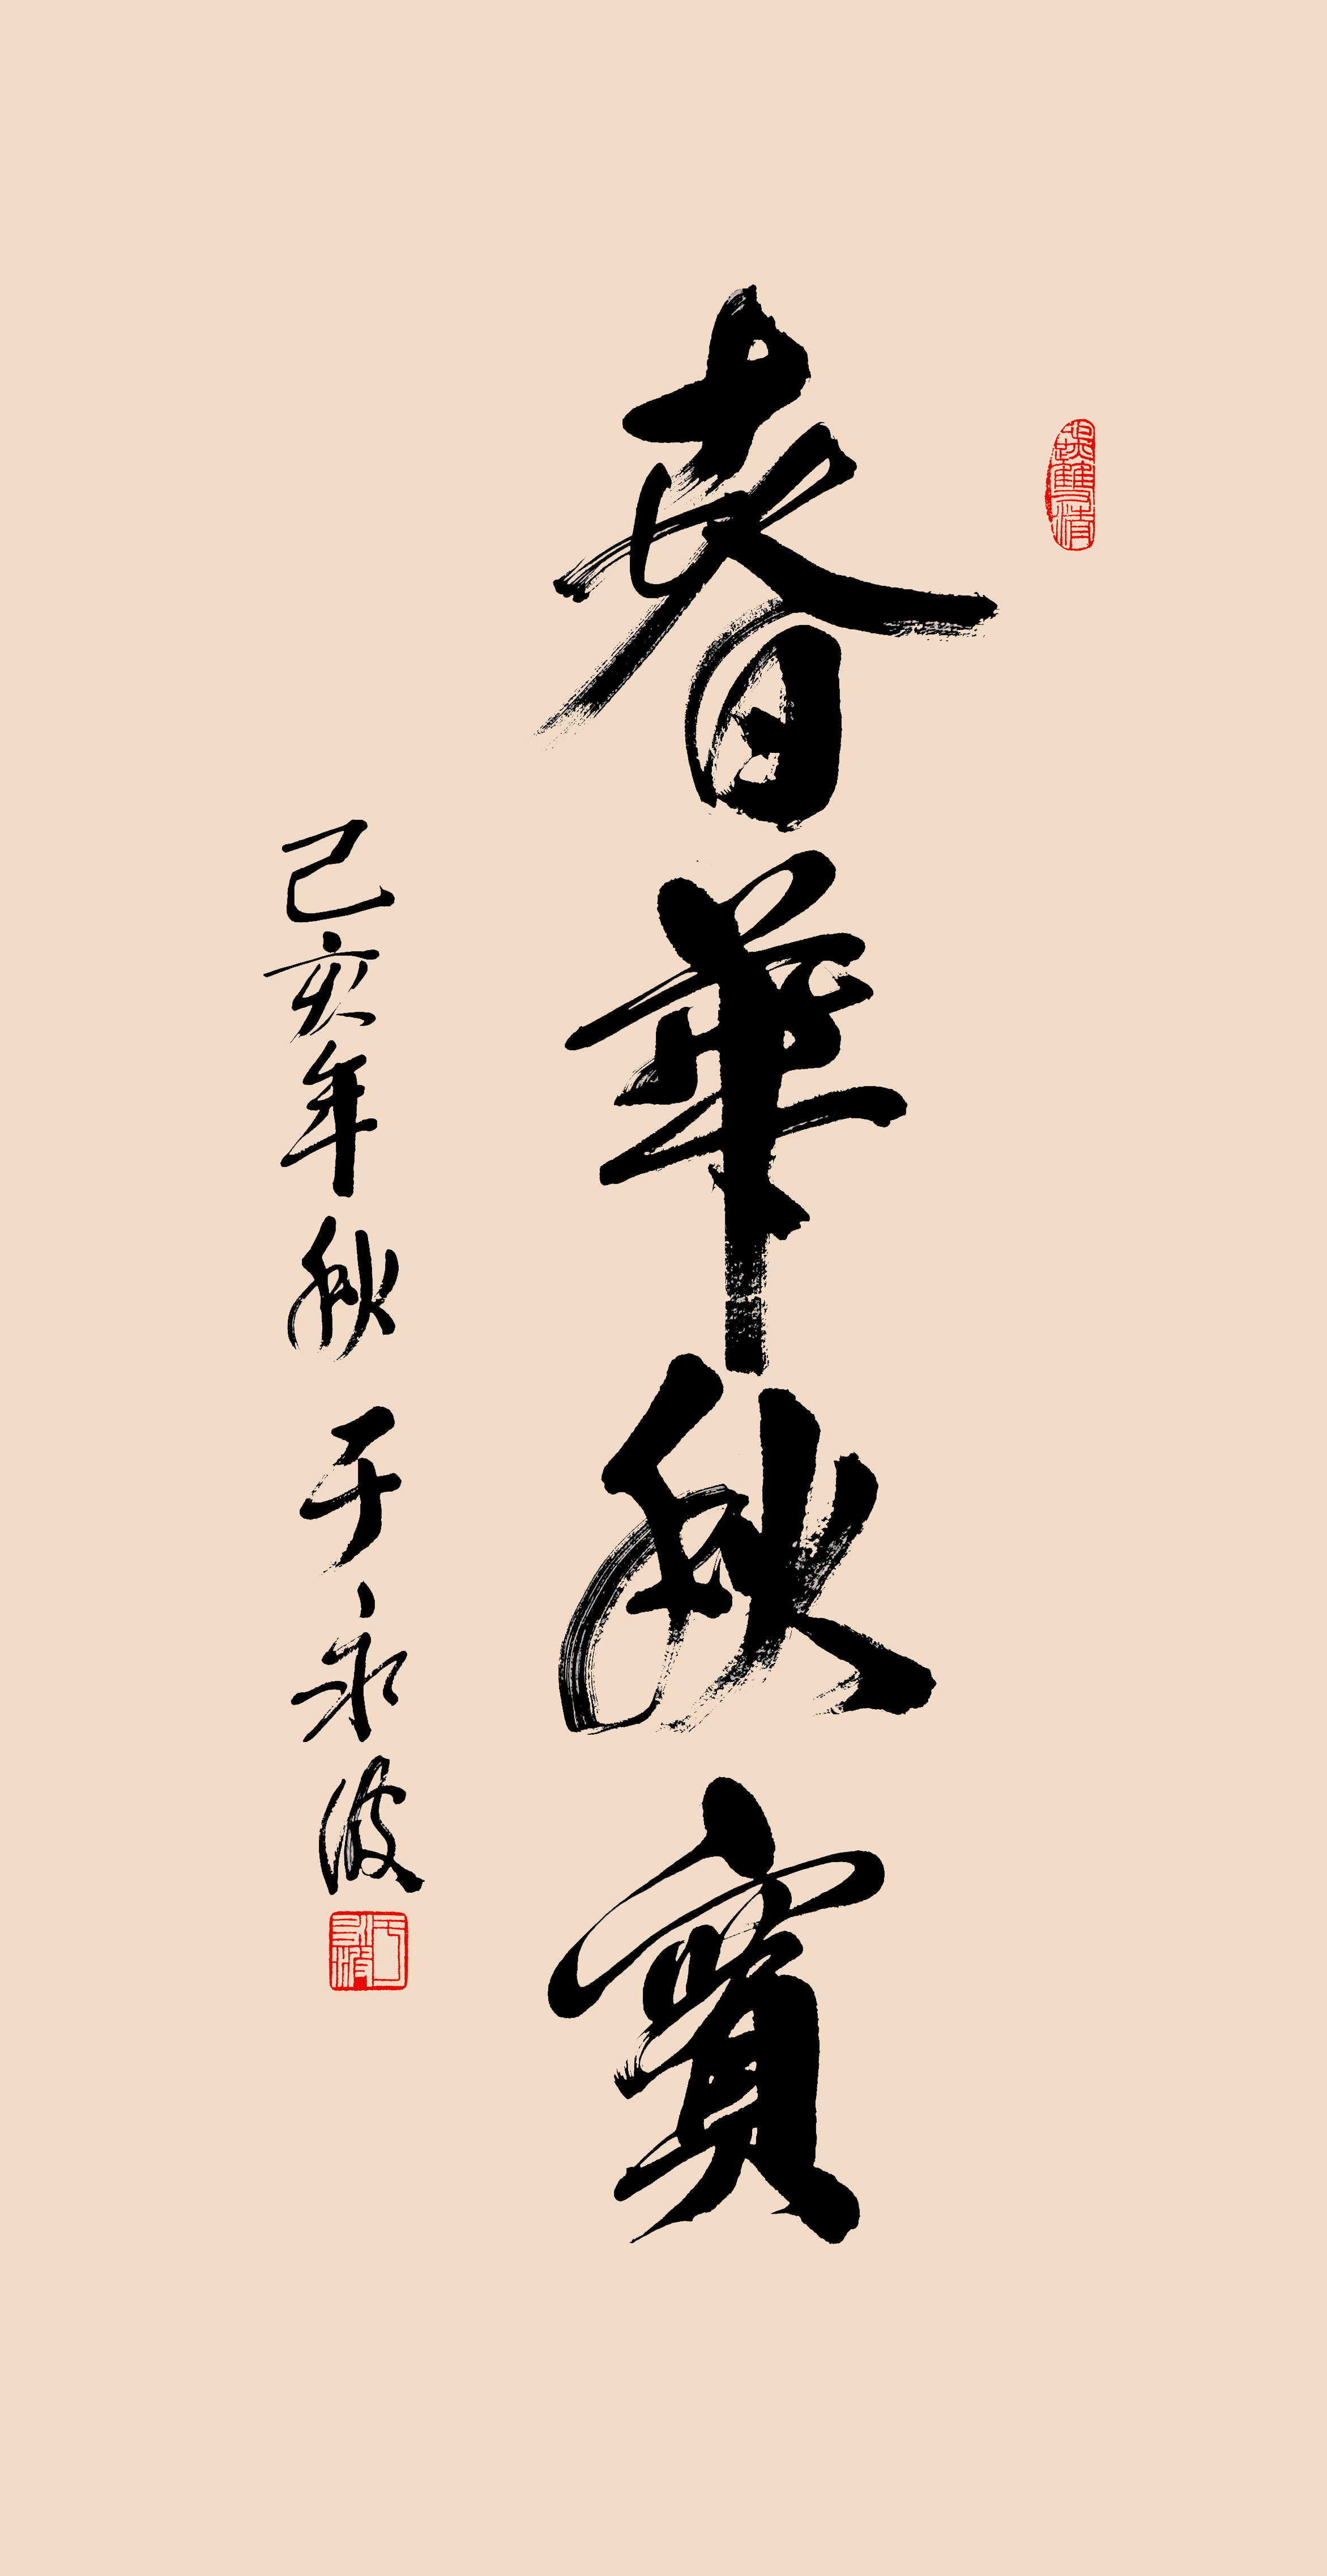 春華秋實
己亥年秋 于永波